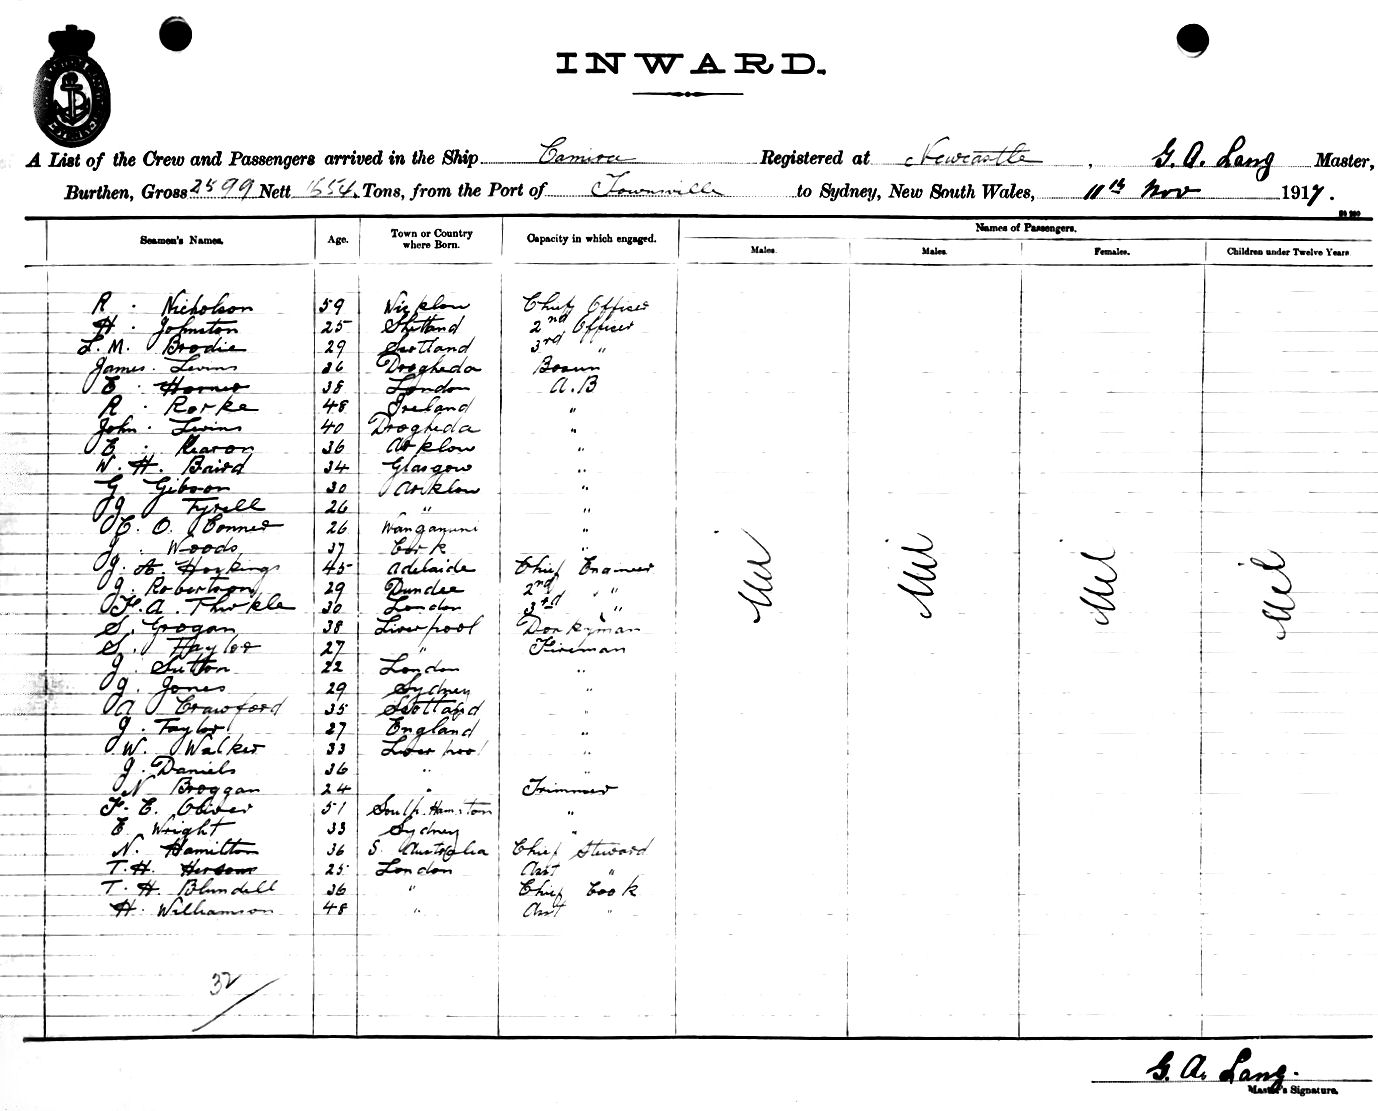 INWARD.
A List of the Crew and Passengers arrived in the Ship Camira Registered at Newcastle, G. A. Lang Master,
Burthen, Gross 2599 Nett 1654 Tons, from the Port of Townsville to Sydney, New South Wales, 11th Nov 1917.
Seamen's Names. Age. Town or Country where Born. Capacity in which engaged. Names of Passengers.
Males. Males. Females. Children under Twelve Years
R. Nicholson 59 Wicklow Chief Officer
H. Johnston 25 Shetland 2nd Officer
L. M. Brodie 29 Scotland 3rd "
James. Levins 36 Drogheda Bosun
E. Horner 38 London A.B
R. Rorke 48 Ireland "
John. Levins 40 Drogheda "
E. Kearon 36 Arklow "
W. H. Baird 34 Glasgow "
G Gibson 30 Arklow "
J Tyrell 26 " "
C. O. Conner 26 Wanganui "
J. Woods 37 Cork "
J. A. Hoskings 45 Adelaide Chief Engineer
J. Robertson 29 Dundee 2nd " "
F. A. Thirkle 30 London 3rd "
S. Grogan 38 Liverpool Donkyman
S. Taylor 27 " Fireman
J. Sutton 22 London "
J. Jones 29 Sydney "
A Crawford 35 Scotland "
J. Taylor 27 England "
W. Walker 33 Liverpool "
J. Daniels 36 " "
N Broggan 24 " Trimmer
F. E. Oliver 51 Southamston "
E Wright 33 Sydney "
N. Hamilton 36 S. Australia Chief Steward
T. H. 25 London Asst "
T. H. Blundell 36 " Chief Cook
H. Williamson 48 " Asst "
Nil Nil Nil Nil
32
G. A. Lang.
Master's Signature.